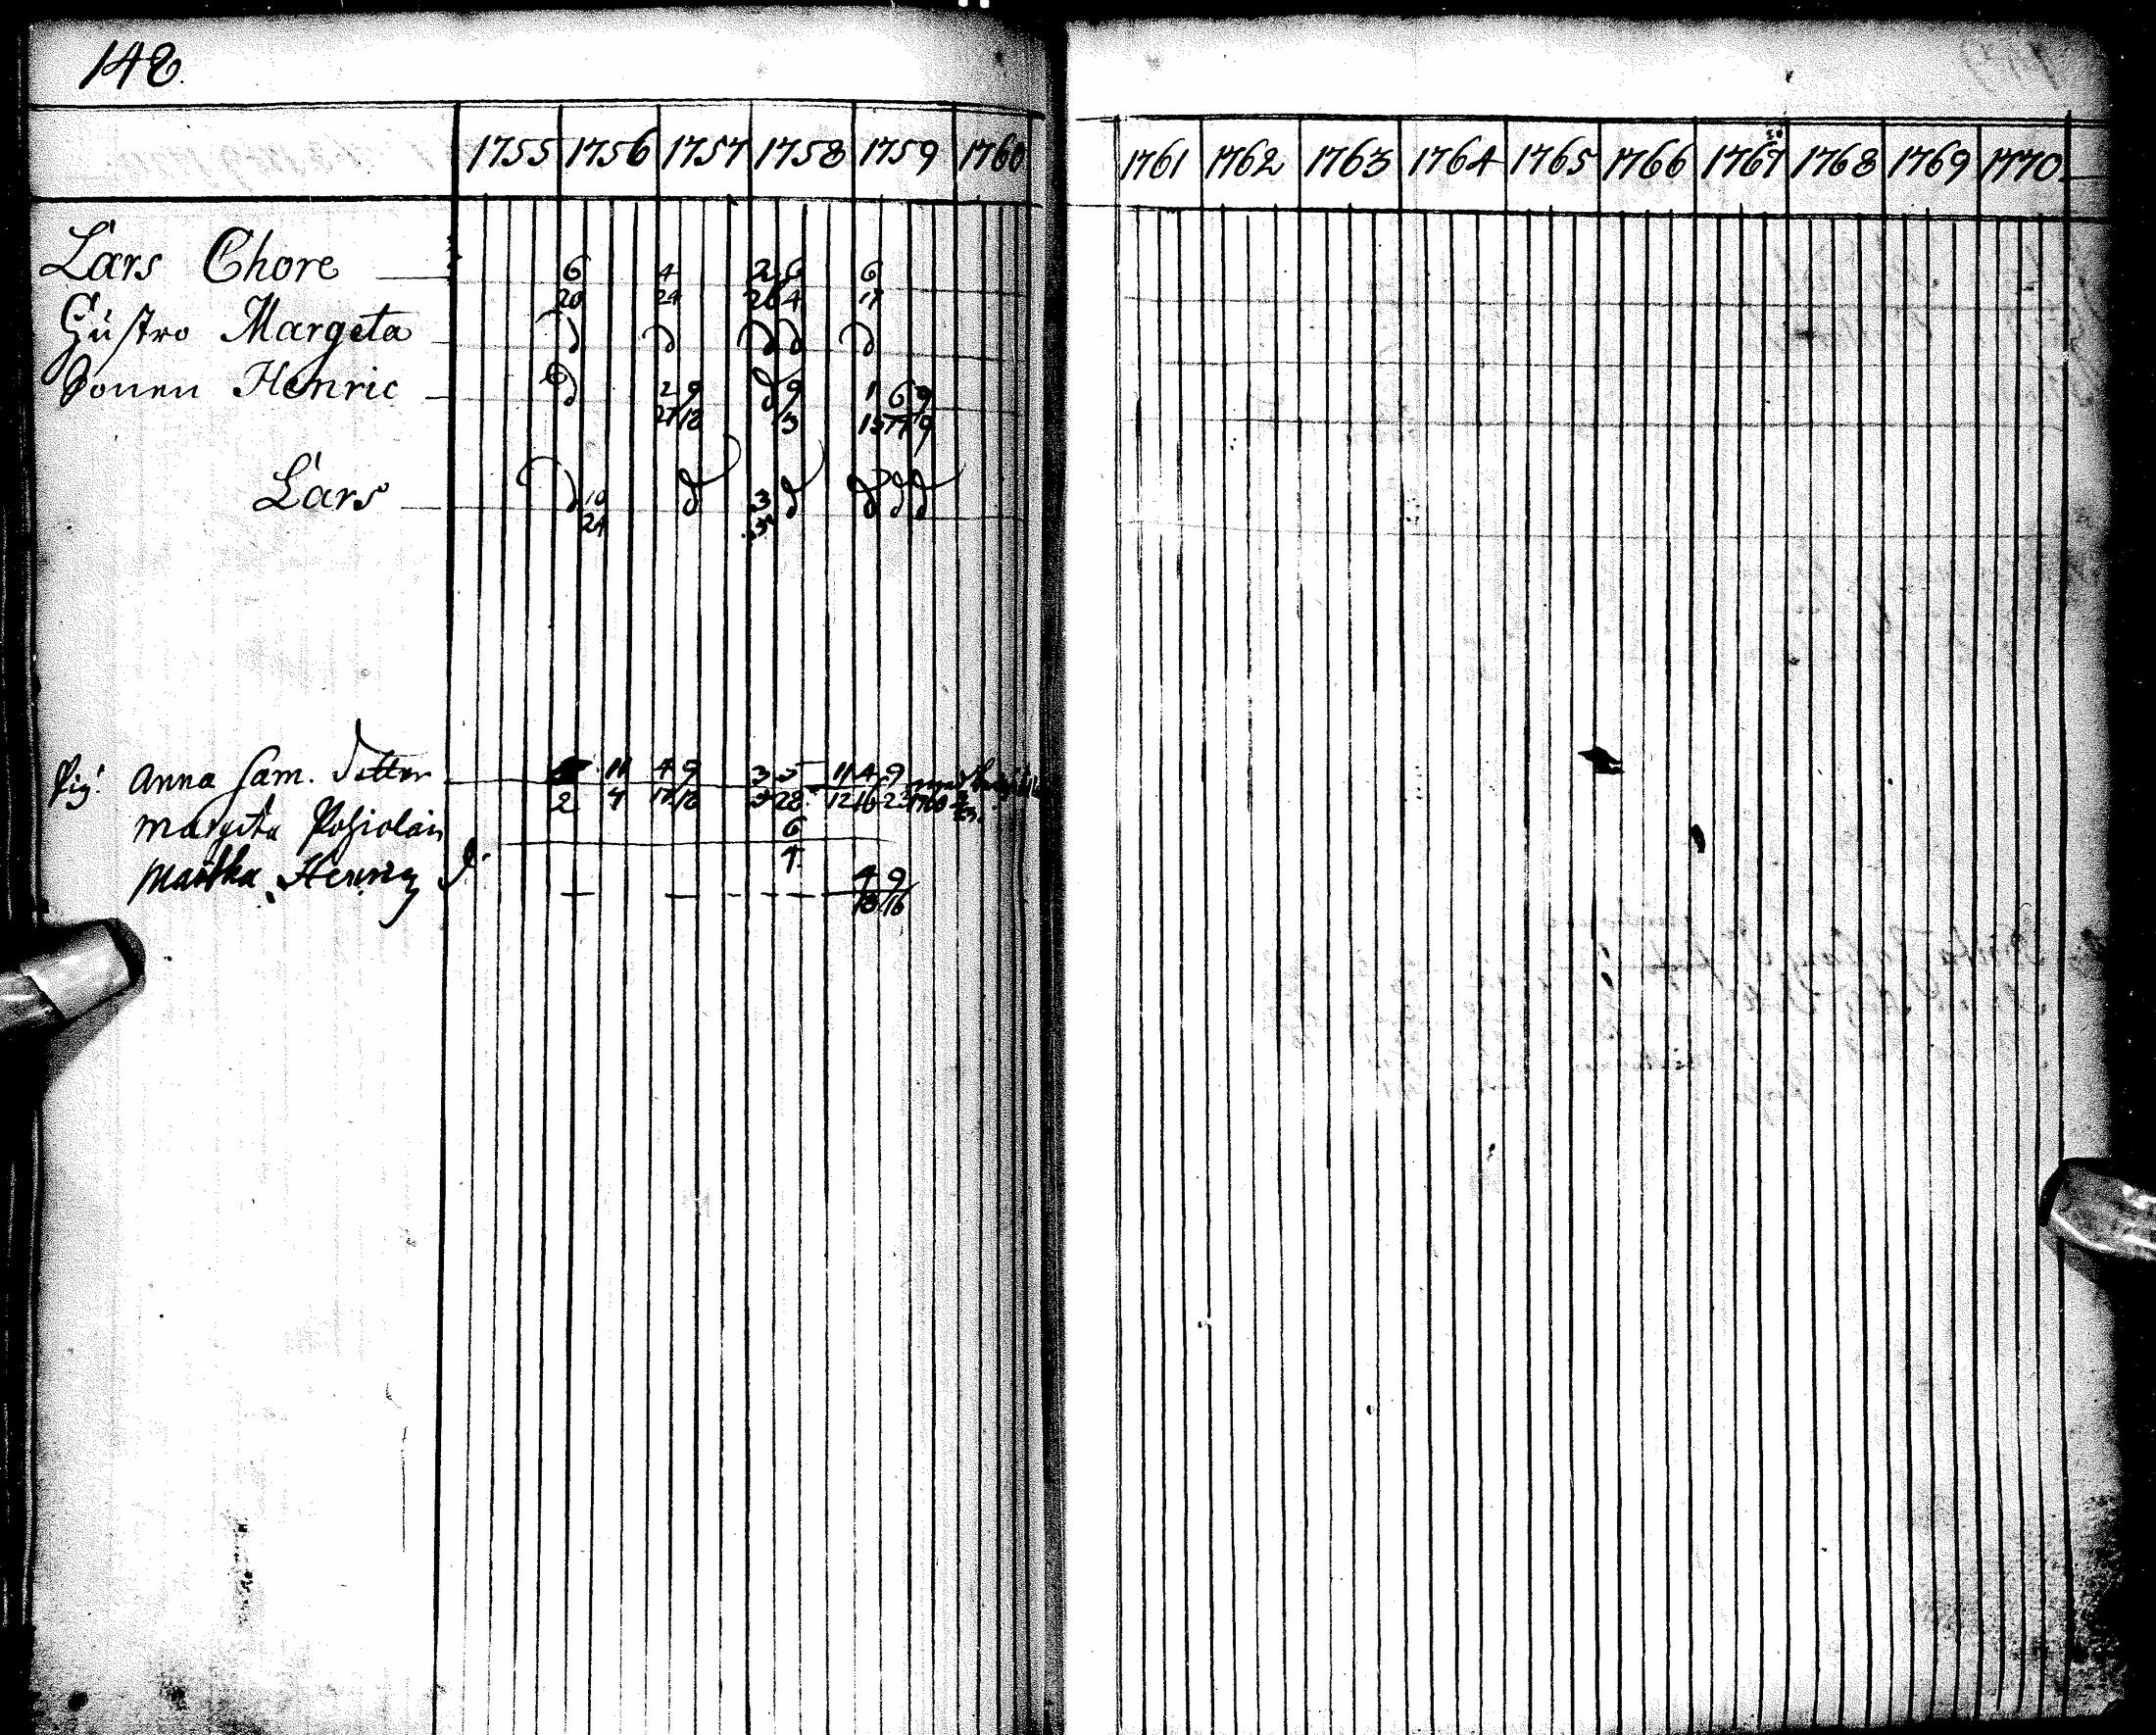 148.
1755 1756 1757 1758 1759 1760 1761 1762 1763 1764 1765 1766 1767 1768 1769 1770
Lars Chore 6 4 2 6 6
20 24 26 4 17
Hústro Margeta d d d d d
Sonen Henric d 2 9 d 9 1 6 9
27 18 3 15 17 9
Lars d 10 d 3 d d d d
24 3
Pig. Anna Sam. dotter 11 4 9 3 5 11 4 9
2 7 17 18 5 28 12 16 23 1760
Margeta Pohiolain 6
4
Henrics d. 4 9
18 16